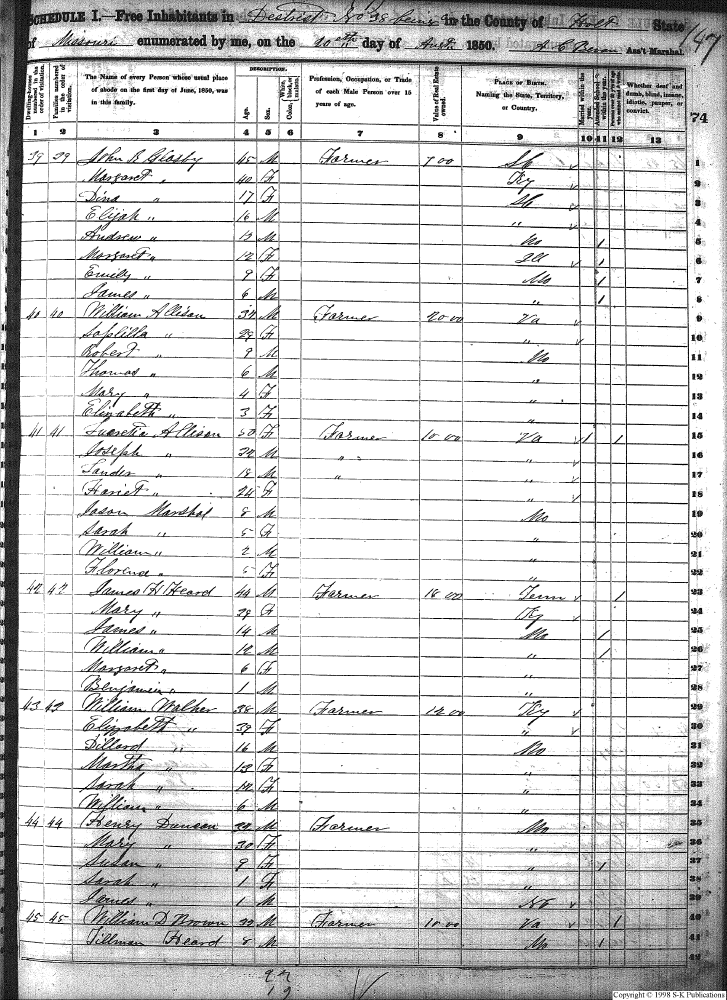 SCHEDULE I.—Free Inhabitants in District No 38 being in the County of Holt State
of Missouri enumerated by me, on the 20th day of Augt. 1850. Ass't Marshal.
147
74
Dwelling-houses numbered in the order of visitation.
Families numbered in the order of visitation.
The Name of every Person whose usual place of abode on the first day of June, 1850, was in this family.
DESCRIPTION.
Age.
Sex.
White, black, or mulatto.
Color,
Profession, Occupation, or Trade of each Male Person over 15 years of age.
Value of Real Estate owned.
PLACE OF BIRTH. Naming the State, Territory, or Country.
Married within the year.
Attended School within the year.
Whether deaf and dumb, blind, insane, idiotic, pauper, or convict.
1 2 3 4 5 6 7 8 9 10 11 12 13
39 39 John B 45 M Farmer 700 1
Margaret " 40 F Ky 2
17 F 3
Elijah " 16 M " 4
Andrew " 13 M Mo 1 5
Margaret " 12 F Ill 1 6
Emily " 9 F Mo 1 7
James " 6 M " 1 8
40 40 William Allison 37 M Farmer 2000 Va 9
" 29 F " 10
Robert " 9 M Mo 11
Thomas " 6 M " 12
Mary " 4 F " 13
Elizabeth " 3 F " 14
41 41 Lucretia Allison 50 F Farmer 1000 Va 1 1 15
Joseph " 22 M " " 16
Sander " 18 M " " 17
Hariet " 24 F " 18
Jason Marshal 8 M Mo 19
Sarah " 5 F " 20
William " 2 M " 21
" 5 F " 22
42 42 James H Heard 44 M Farmer 1800 Tenn 1 23
Mary " 29 F Ky 24
James " 14 M Mo 1 25
William " 10 M " 1 26
Margaret " 6 F " 27
Benjamin " 1 M " 28
43 43 William Walker 38 M Farmer 1200 Ky 29
Elizabeth " 39 F " 30
Dillard " 16 M Mo 31
Martha " 13 F " 32
Sarah " 10 F " 33
William " 6 M " 34
44 44 Henry Duncan M Farmer Mo 35
Mary " 30 F " 36
Susan " 9 F " 1 37
Sarah " 1 F " 38
James " 1 M 39
45 45 William D Brown M Farmer 1000 Va 1 40
Tillman Heard 8 M Mo 1 41
42
Copyright © 1998 S-K Publications